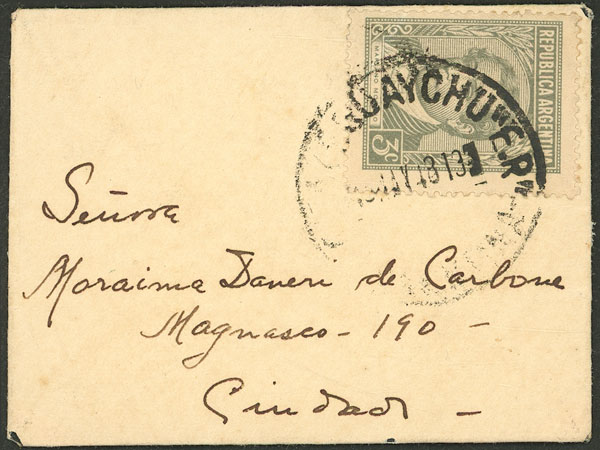 REPUBLICA ARGENTINA
MARIANO MORENO
3c
GUAYCHU "E.R"
MAY 43 19
Señora
Moraima Daneri de Carbone
Magnasco - 190 -
Ciudad -